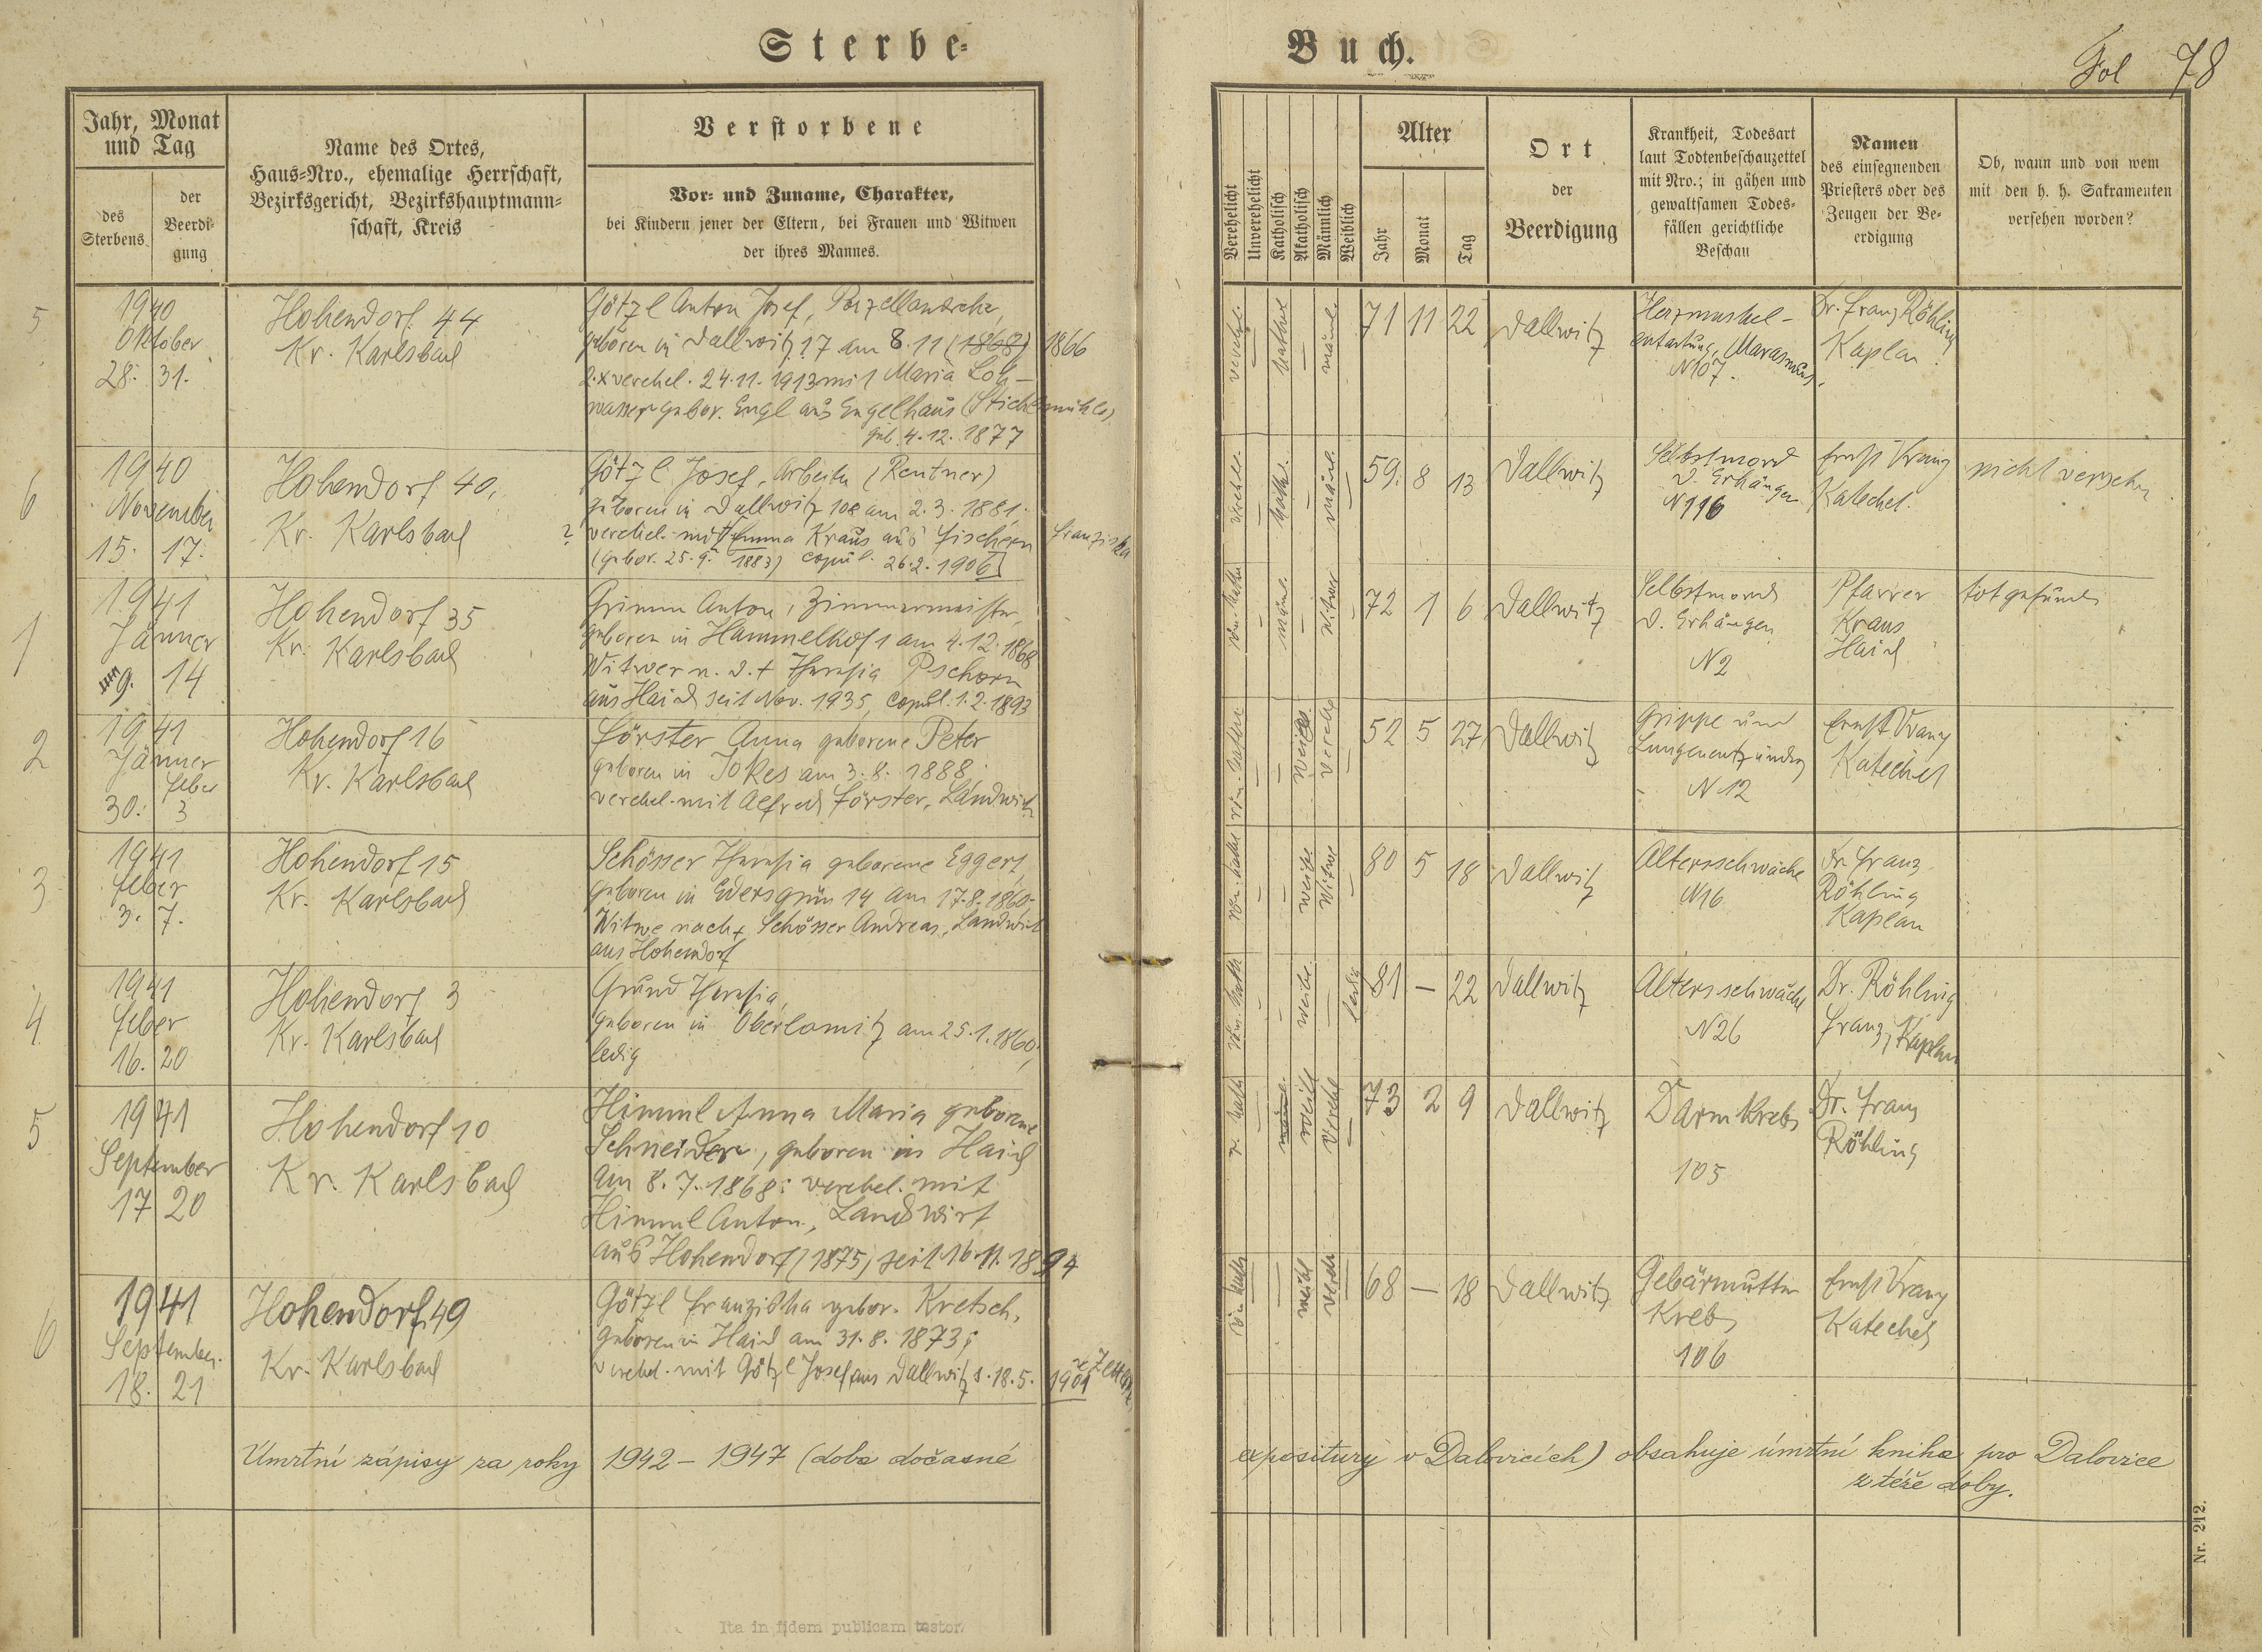 Sterbe-
Buch.
Fol 78
Jahr, Monat
und Tag
des
Sterbens
der
Beerdi-
gung
Name des Ortes,
Haus-Nro., ehemalige Herrschaft,
Bezirksgericht, Bezirkshauptmann-
schaft, Kreis
Verstorbene
Vor- und Zuname, Charakter,
bei Kindern jener der Eltern, bei Frauen und Witwen
der ihres Mannes.
Verehelicht
Unverehelicht
Katholisch
Akatholisch
Männlich
Weiblich
Alter
Jahr
Monat
Tag
Ort
der
Beerdigung
Krankheit, Todesart
laut Todtenbeschauzettel
mit Nro.; in gähen und
gewaltsamen Todes-
fällen gerichtliche
Beschau
Namen
des einsegnenden
Priesters oder des
Zeugen der Be-
erdigung
Ob, wann und von wem
mit den h. h. Sakramenten
versehen worden?
5
1940
Oktober
28. 31.
Hohendorf 44
Kr. Karlsbad
Götzl Anton Josef,
geboren in Dallwitz 17 am 8.11 (1868) 1866
verehel. 24.11.1913 mit Maria Loh-
wasser gebor. Engl aus Engelhaus (Stichlmühle)
geb. 4.12.1877
71 11 22
Dallwitz
Herzmuskel-
entartung, Marasmus.
N 107.
Dr. Franz Röhling
Kaplan
6
1940
November
15. 17.
Hohendorf 40,
Kr. Karlsbad
Götzl Josef, Arbeiter (Rentner)
geboren in Dallwitz 108 am 2.3.1881.
? verehel. mit Emma Kraus aus Fischern Franziska
(gebor. 25.9. 1883) copul. 26.2.1906
59. 8 13
Dallwitz
Selbstmord
d. Erhängen
N 116
Ernst Franz
Katechet.
nicht versehen
1
1941
Jänner
9. 14
Hohendorf 35
Kr. Karlsbad
Grimm Anton, Zimmermeister,
geboren in Hammelhof 1 am 4.12.1868
Witwer n. d. + Theresia Pschorn
aus Haid seit Nov. 1935, copul. 1.2.1893
72 1 6
Dallwitz
Selbstmord
d. Erhängen
N 2
Pfarrer
Kraus
Haid
tot gefunden
2
1941
Jänner
Feber
30. 3
Hohendorf 16
Kr. Karlsbad
Förster Anna geborene Peter
geboren in Jokes am 3.8.1888,
verehel. mit Alfred Förster, Landwirt
52 5 27
Dallwitz
Grippe und
Lungenentzündg
N 12
Ernst Franz
Katechet
3
1941
Feber
3. 7.
Hohendorf 15
Kr. Karlsbad
Schösser Theresia geborene Eggert,
geboren in Edersgrün 14 am 17.8.1860.
Witwe nach + Schösser Andreas, Landwirt
aus Hohendorf
80 5 18
Dallwitz
Altersschwäche
N 16
Dr. Franz
Röhling
Kaplan
4
1941
Feber
16. 20
Hohendorf 3
Kr. Karlsbad
Grund Theresia,
geboren in Oberlomitz am 25.1.1860,
ledig
81 – 22
Dallwitz
Altersschwäche
N 26
Dr. Röhling
Franz, Kaplan
5
1941
September
17 20
Hohendorf 10
Kr. Karlsbad
Himml Anna Maria geborene
Schneider, geboren in Haid
am 8.7.1868; verehel. mit
Himml Anton, Landwirt
aus Hohendorf (1875) seit 16.11.1894
73 2 9
Dallwitz
Darmkrebs
105
Dr. Franz
Röhling
6
1941
September
18. 21
Hohendorf 49
Kr. Karlsbad
Götzl Franziska gebor. Kretsch,
geboren in Haid am 31.8.1873;
verehel. mit Götzl Josef aus Dallwitz s. 18.5. 1901
68 – 18
Dallwitz
Gebärmutter
Krebs
106
Ernst Franz
Katechet
Úmrtní zápisy za roky 1942 – 1947 (doba dočasné expositury v Dalovicích) obsahuje úmrtní kniha pro Dalovice
z téže doby.
Ita in fidem publicam testor.
Nr. 212.